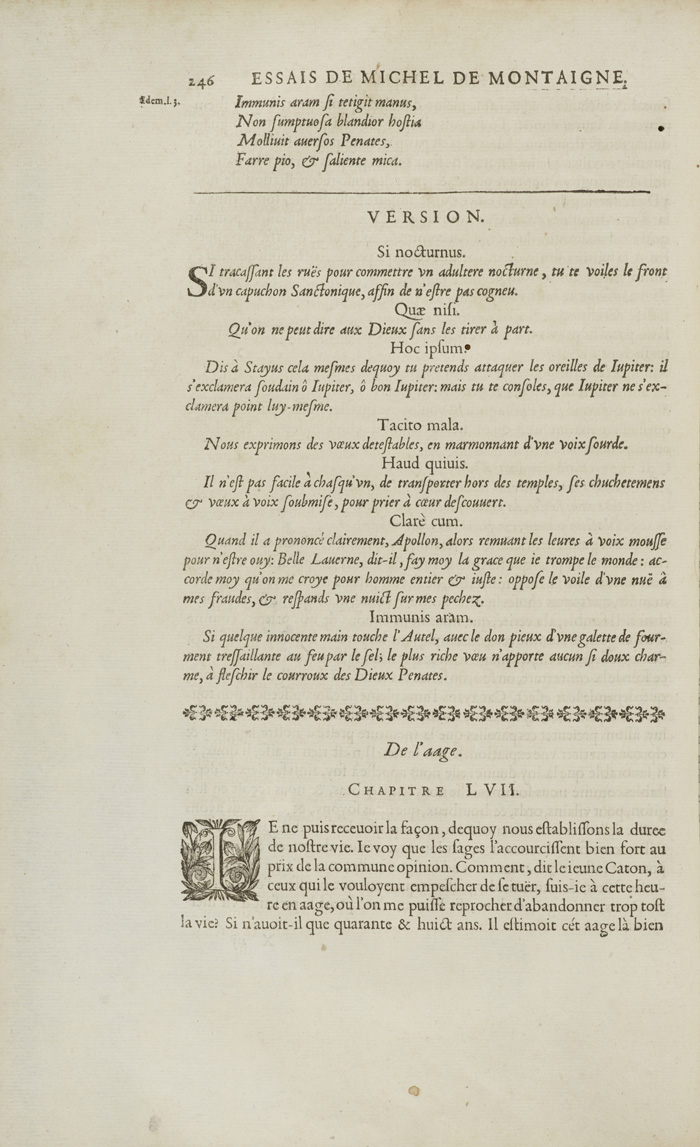 246 ESSAIS DE MICHEL DE MONTAIGNE,
Idem. l. 3.
Immunis aram ſi tetigit manus,
Non ſumptuoſa blandior hoſtia
Molliuit auerſos Penates,
Farre pio, & ſaliente mica.
VERSION.
Si nocturnus.
SI tracaſſant les ruës pour commettre vn adultere nocturne, tu te voiles le front
d'vn capuchon Sanctonique, affin de n'eſtre pas cogneu.
Quæ niſi.
Qu'on ne peut dire aux Dieux ſans les tirer à part.
Hoc ipſum.
Dis à Stayus cela meſmes dequoy tu pretends attaquer les oreilles de Iupiter: il
s'exclamera ſoudain ô Iupiter, ô bon Iupiter: mais tu te conſoles, que Iupiter ne s'ex-
clamera point luy-meſme.
Tacito mala.
Nous exprimons des vœux deteſtables, en marmonnant d'vne voix ſourde.
Haud quiuis.
Il n'eſt pas facile à chaſqu'vn, de tranſporter hors des temples, ſes chuchetemens
& vœux à voix ſoubmiſe, pour prier à cœur deſcouuert.
Clarè cum.
Quand il a prononcé clairement, Apollon, alors remuant les leures à voix mouſſe
pour n'eſtre ouy: Belle Lauerne, dit-il, fay moy la grace que ie trompe le monde: ac-
corde moy qu'on me croye pour homme entier & iuſte: oppoſe le voile d'vne nuë à
mes fraudes, & reſpands vne nuict ſur mes pechez.
Immunis aram.
Si quelque innocente main touche l'Autel, auec le don pieux d'vne galette de four-
ment treſſaillante au feu par le ſel; le plus riche vœu n'apporte aucun ſi doux char-
me, à fleſchir le courroux des Dieux Penates.
De l'aage.
CHAPITRE LVII.
IE ne puis receuoir la façon, dequoy nous eſtabliſſons la duree
de noſtre vie. Ie voy que les ſages l'accourciſſent bien fort au
prix de la commune opinion. Comment, dit le ieune Caton, à
ceux qui le vouloyent empeſcher de ſe tuër, ſuis-ie à cette heu-
re en aage, où l'on me puiſſe reprocher d'abandonner trop toſt
la vie? Si n'auoit-il que quarante & huict ans. Il eſtimoit cét aage là bien